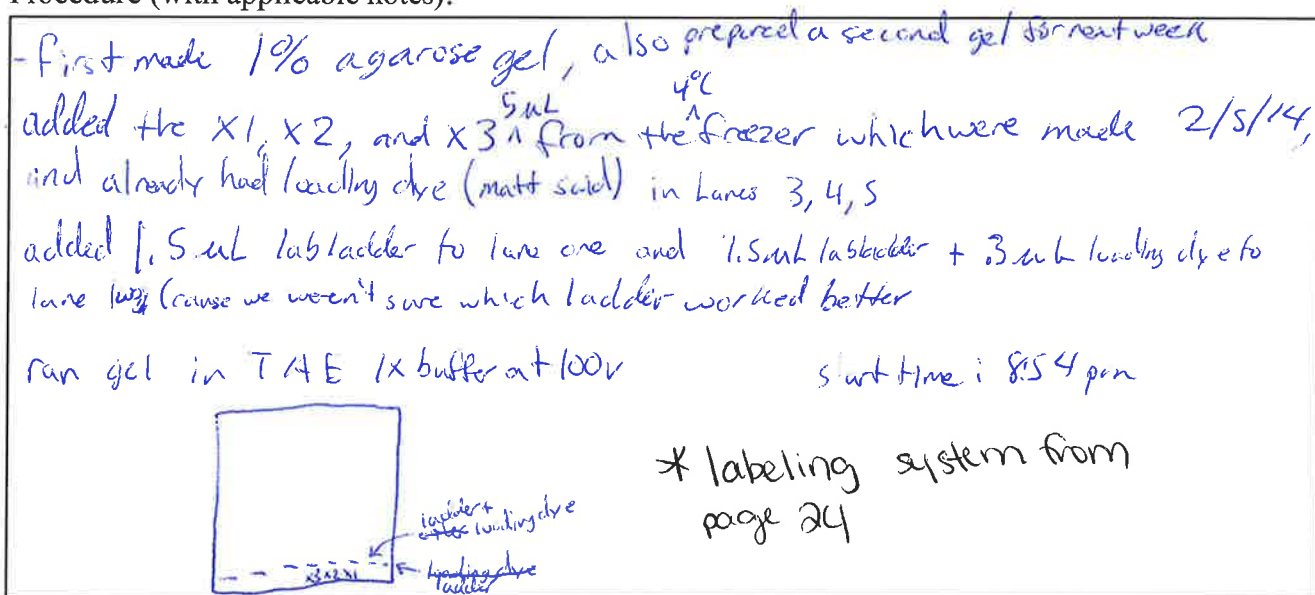 Procedure (with applicable notes):
- first made 1% agarose gel, also prepared a second gel for next week
added the X1, X2, and X3 ^ 5uL from the ^ 4°C freezer which were made 2/5/14,
and already had loading dye (matt said) in Lanes 3, 4, 5
added 1.5 uL lab ladder to lane one and 1.5uL lab ladder + .3 uL loading dye to
lane two (cause we weren't sure which ladder worked better
ran gel in TAE 1X buffer at 100v start time: 8:54 pm
* labeling system from
page 24
ladder +
loading dye
X3 X2 X1
loading dye
ladder